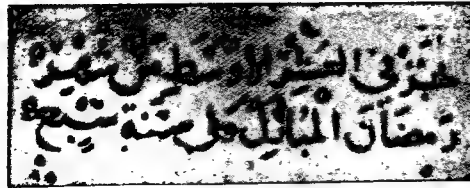 في العشر الأوسط من شهر
رمضان المبارك من سنة سبع